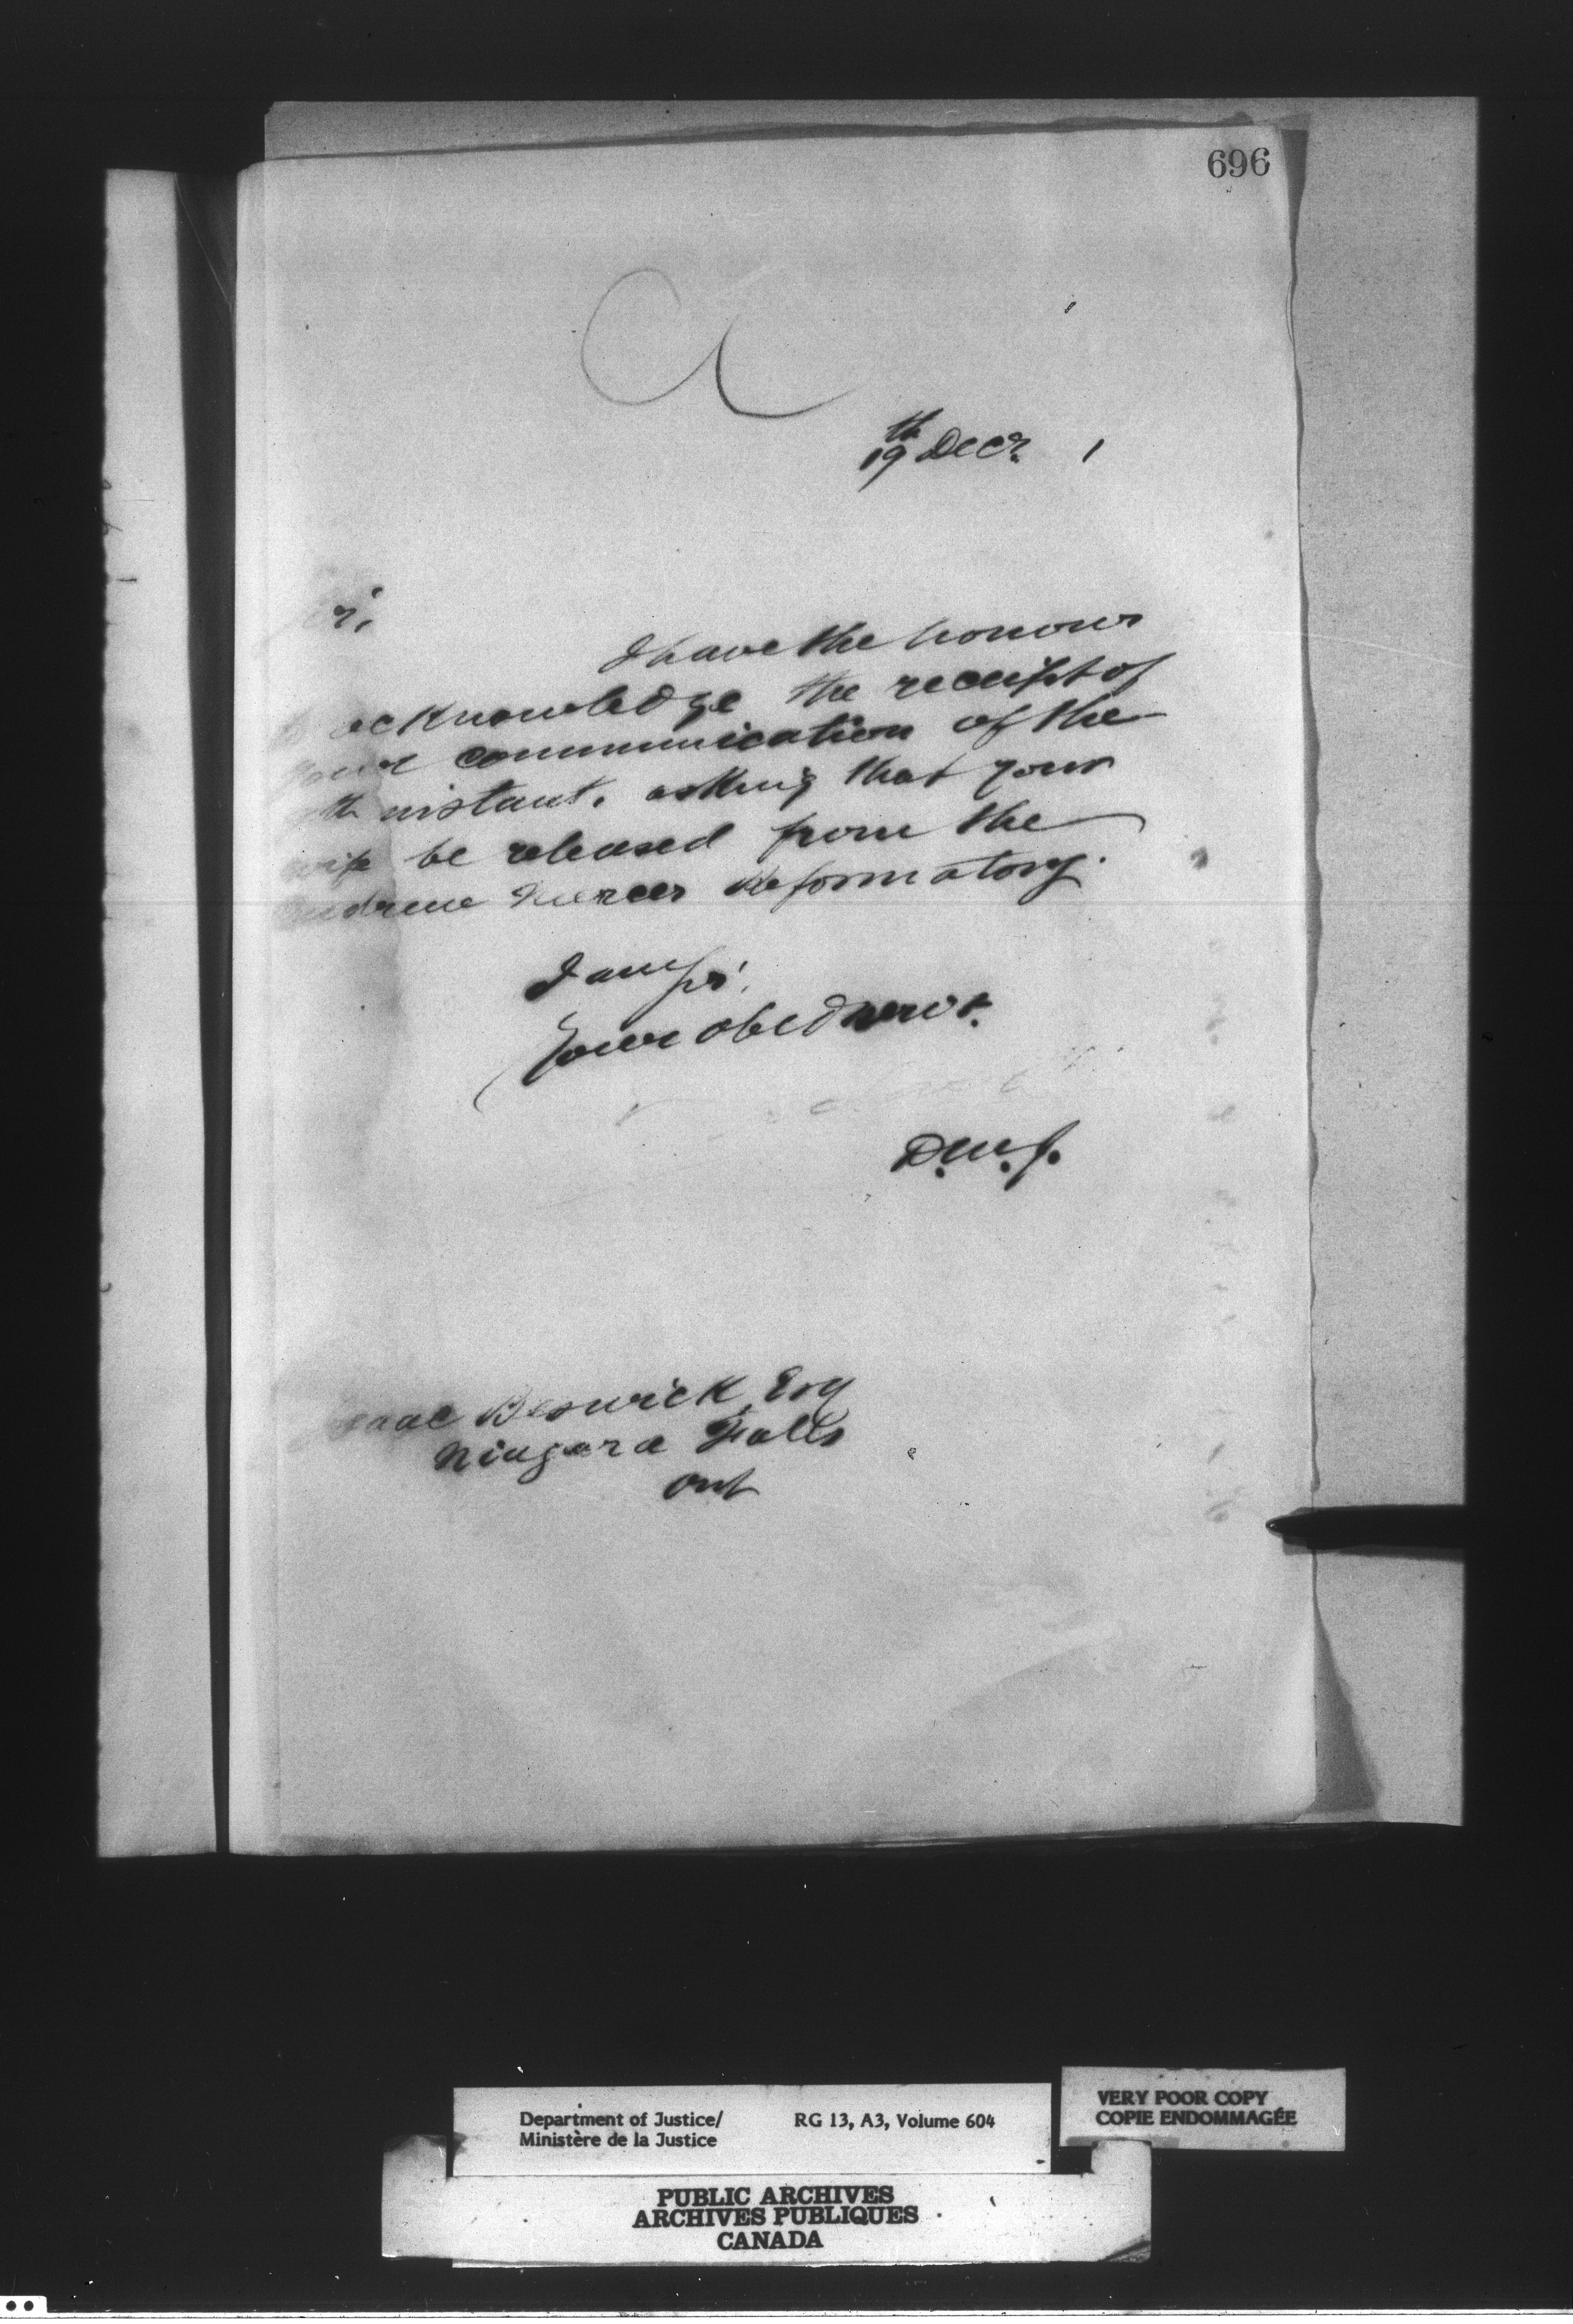 696
A
19th Decr. 1
Sir,
I have the honour
to acknowledge the receipt of
your communication of the
th instant, asking that your
wife be released from the
Andrew Mercer Reformatory.
I am Sir,
Your obed servt.
D.M.J.
Isaac Beswick, Esq
Niagara Falls
Ont
Department of Justice/
Ministère de la Justice
RG 13, A3, Volume 604
VERY POOR COPY
COPIE ENDOMMAGÉE
PUBLIC ARCHIVES
ARCHIVES PUBLIQUES
CANADA